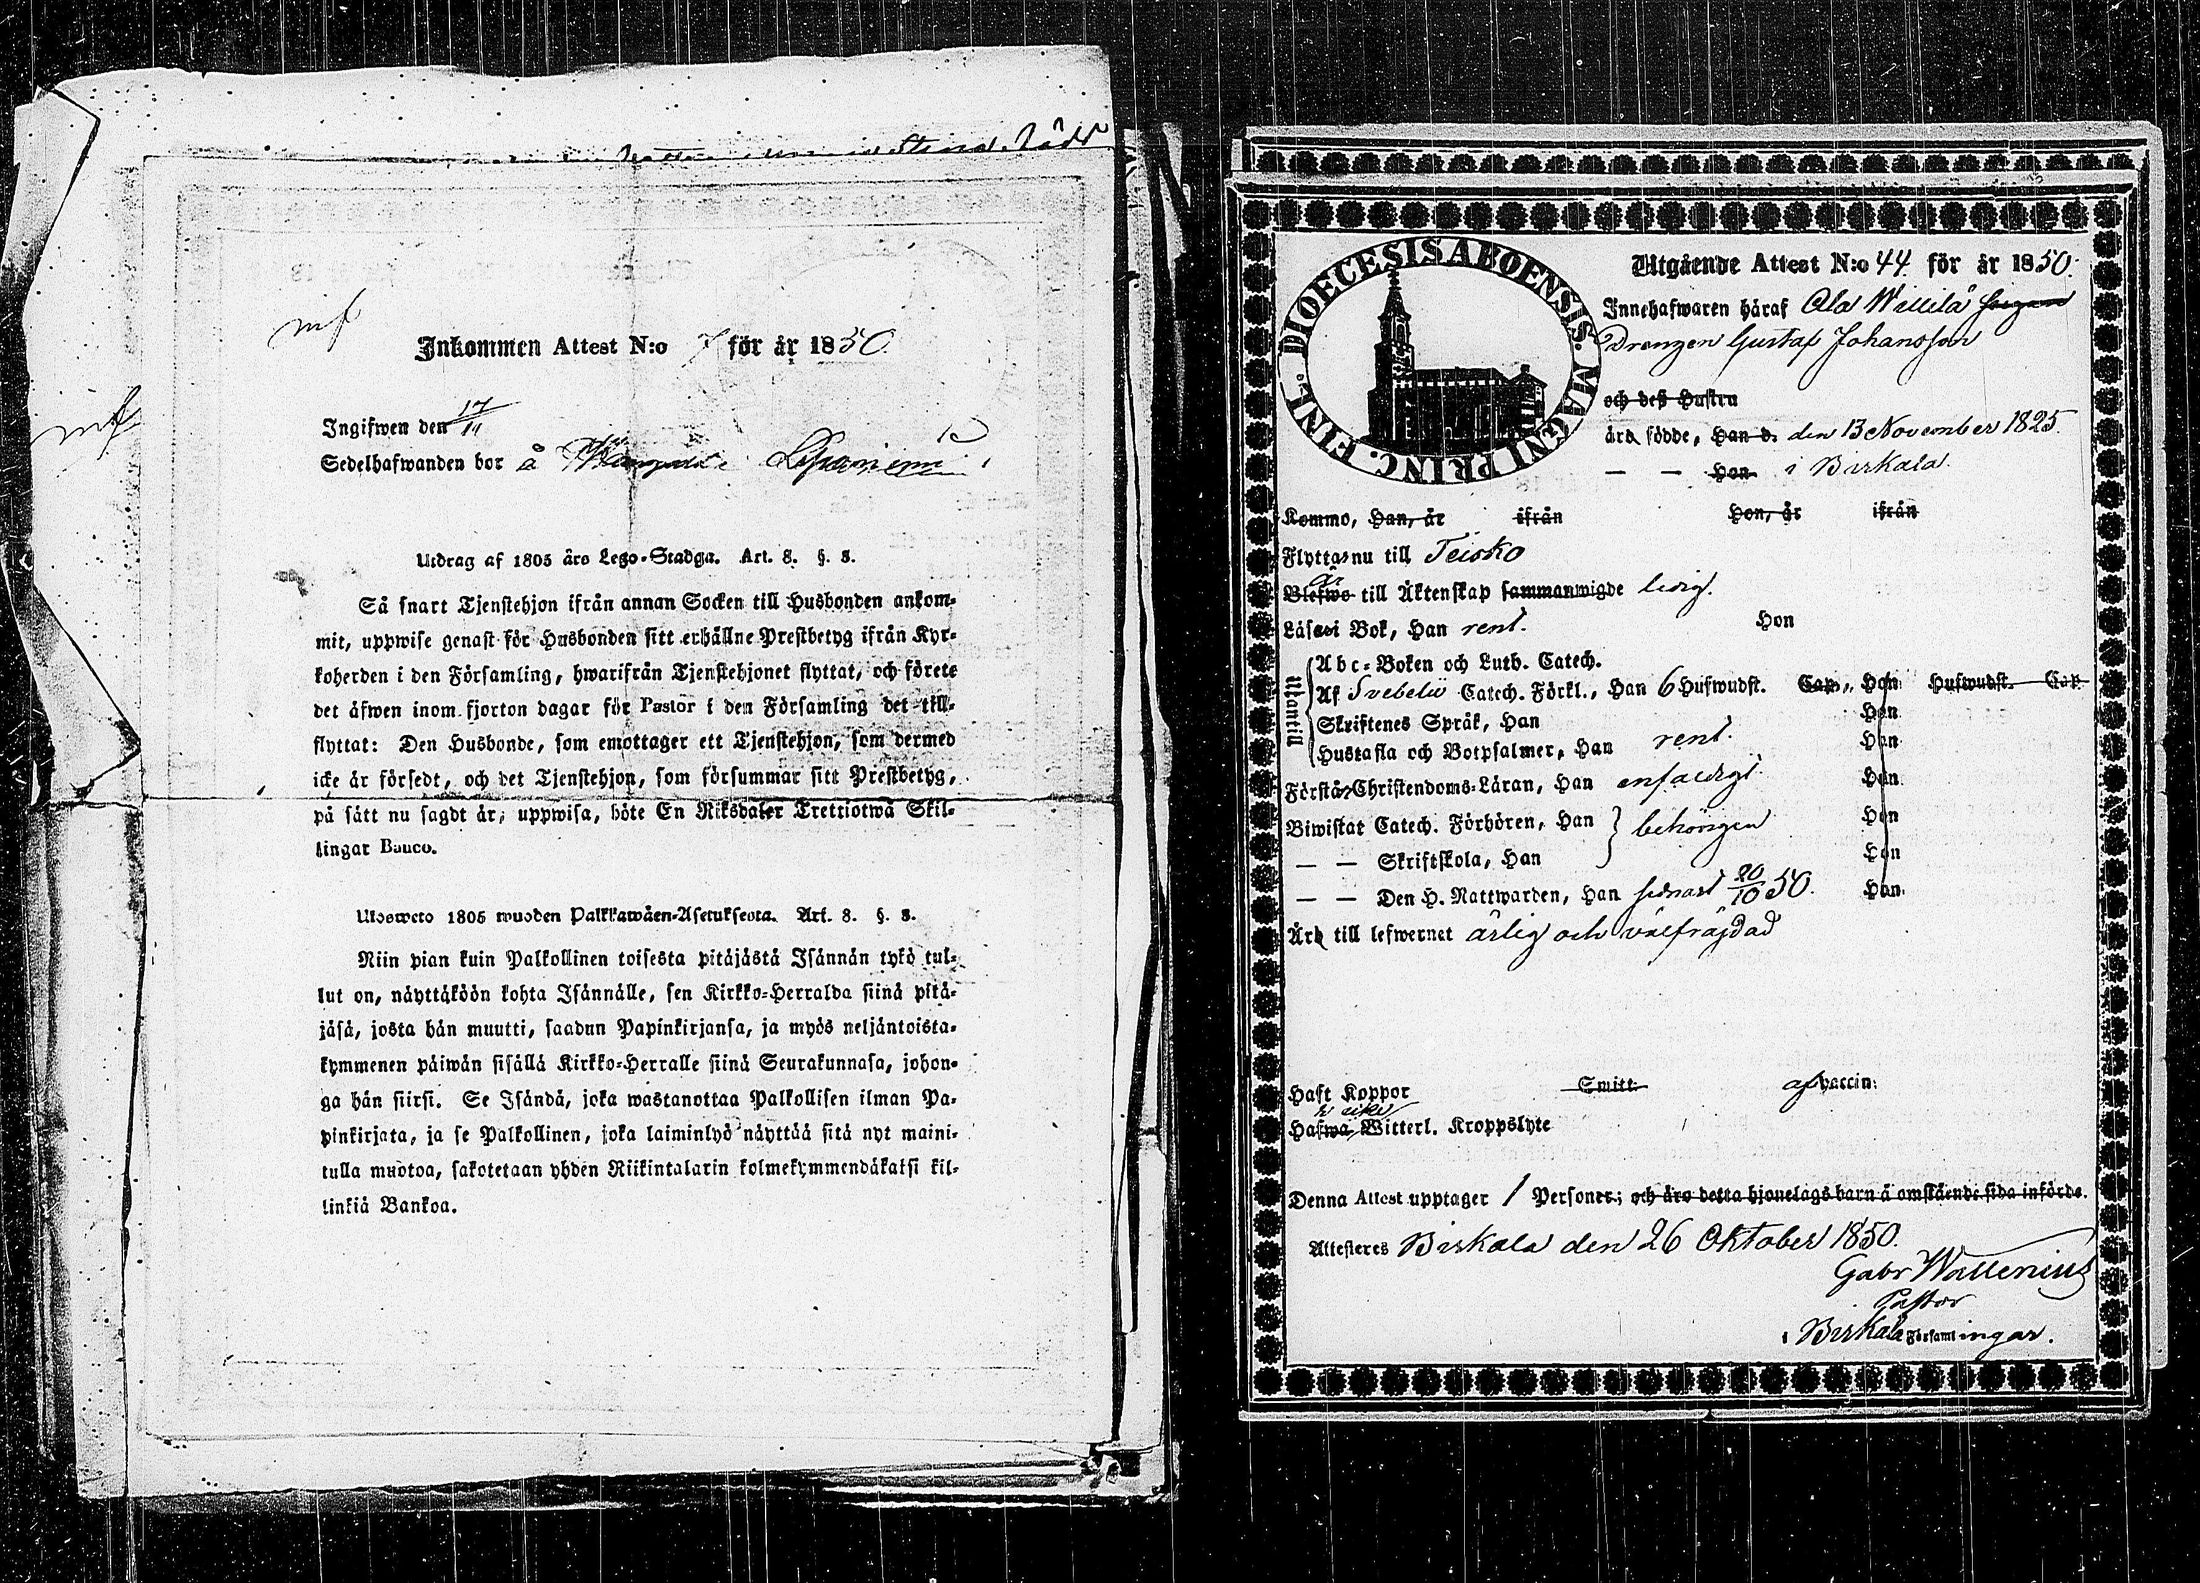 mf
Inkommen Attest N:o 7 för år 1850.
mf
Ingifwen den 17/11
Sedelhafwanden bor å
Utdrag af 1805 års Lego-Stadga. Art. 8. §. 3.
Så snart Tjenstehjon ifrån annan Socken till Husbonden ankom-
mit, uppwise genast för Husbonden sitt erhållne Prestbetyg ifrån Kyr-
koherden i den Församling, hwarifrån Tjenstehjonet flyttat, och förete
det äfwen inom fjorton dagar för Pastor i den Församling det till-
flyttat: Den Husbonde, som emottager ett Tjenstehjon, som dermed
icke är försedt, och det Tjenstehjon, som försummar sitt Prestbetyg,
på sätt nu sagdt är, uppwisa, böte En Riksdaler Trettiotwå Skil-
lingar Banco.
Ulosweto 1805 wuoden Palkkawäen-Asetuksesta. Art. 8. §. 3.
Niin pian kuin Palkollinen toisesta pitäjästä Isännän tykö tul-
lut on, näyttäköön kohta Isännälle, sen Kirkko-Herralda siinä pitä-
jäsä, josta hän muutti, saadun Papinkirjansa, ja myös neljäntoista-
kymmenen päiwän sisällä Kirkko-Herralle siinä Seurakunnasa, johon-
ga hän siirsi. Se Isändä, joka wastanottaa Palkollisen ilman Pa-
pinkirjata, ja se Palkollinen, joka laiminlyö näyttää sitä nyt maini-
tulla muotoa, sakotetaan yhden Riikintalarin kolmekymmendäkaksi kil-
linkiä Bankoa.
DIOECESIS ABOENSIS. MAGNI PRINC. FINL.
Utgående Attest N:o 44 för år 1850.
Innehafwaren häraf Ala Willilä
Drengen Gustaf Johansson
och deß Hustru
äro födde, Han d. den 13 November 1825.
— — Hon i Birkala.
Kommo, Han, år ifrån Hon, år ifrån
Flyttas nu till Teisko
är
Blefwo till Äktenskap sammanwigde ledig.
Läsa i Bok, Han rent. Hon
Utantill
Abc-Boken och Luth. Catech.
Af Svebelii Catech. Förkl., Han 6 Hufwudst. Cap., Hon Hufwudst. Cap.
Skriftenes Språk, Han Hon
Hustafla och Botpsalmer, Han rent. Hon
Förstår Christendoms-Läran, Han enfaldigt. Hon
Biwistat Catech. Förhören, Han behörigen Hon
— — Skriftskola, Han Hon
— — Den H. Nattwarden, Han sednast 20/10 50. Hon
Är till lefwernet ärlig och välfräjdad
Haft Koppor Smitt. af vaccin.
r icke
Hafwa Witterl. Kroppslyte
Denna Attest upptager 1 Personer; och äro detta hjonelags barn å omstående sida införde.
Attesteres Birkala den 26 Oktober 1850.
Gabr Wallenius
Pastor
i Birkala Församlingar.